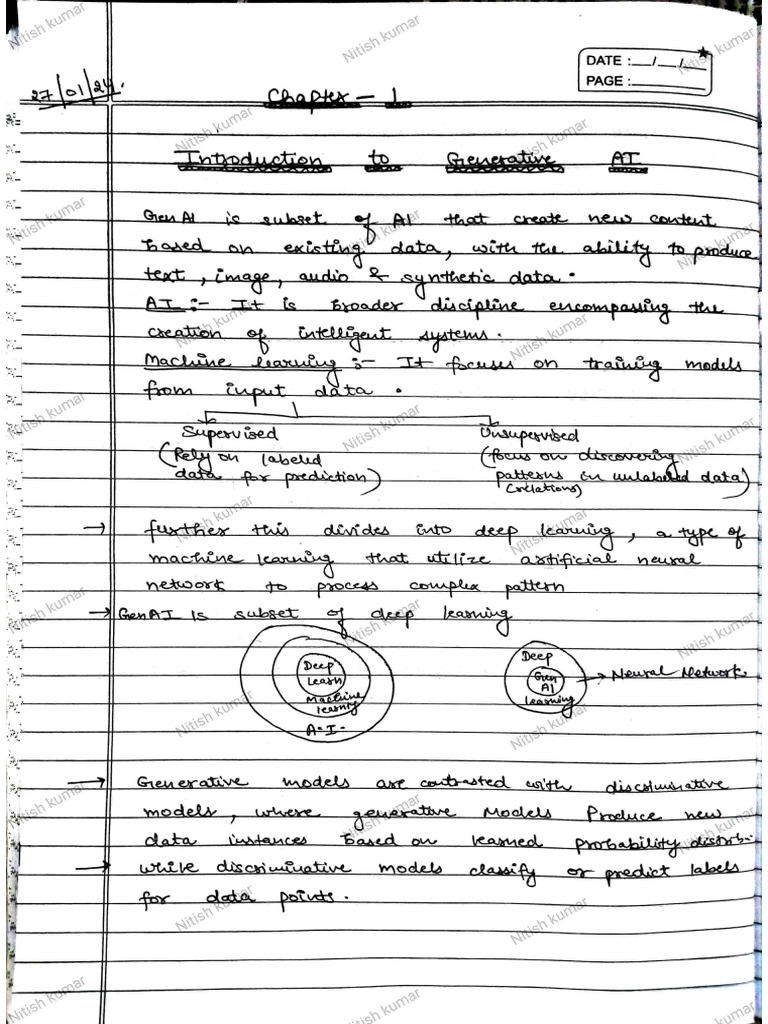 DATE : __/__/__
PAGE :
27/01/24.
Chapter - 1
Introduction to Generative AI
Gen AI is subset of AI that create new content
based on existing data, with the ability to produce
text, image, audio & synthetic data.
AI :- It is broader discipline encompassing the
creation of intelligent systems.
Machine learning :- It focuses on training models
from input data.
Supervised
(Rely on labeled
data for prediction)
Unsupervised
(focus on discovering
patterns in unlabeled data)
(relations)
→ further this divides into deep learning, a type of
machine learning that utilize artificial neural
network to process complex pattern
→ Gen AI is subset of deep learning
Deep
Learn
Machine
learning
A.I.
Deep
Gen
AI
learning
→ Neural Network
→ Generative models are contrasted with discriminative
models, where generative Models Produce new
data instances based on learned probability distrb..
→ while discriminative models classify or predict labels
for data points.
Nitish kumar